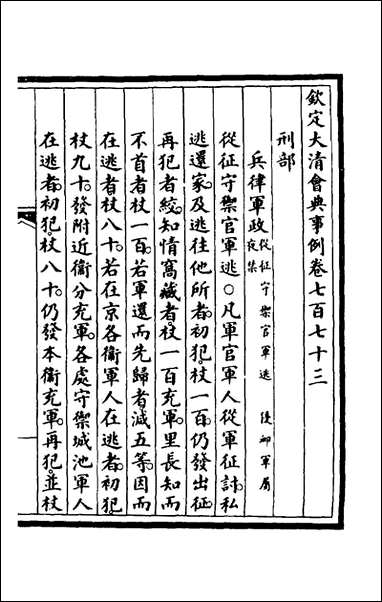 欽定大清會典事例卷七百七十三
刑部
兵律軍政從征守禦官軍逃 優卹軍屬
夜禁
從征守禦官軍逃○凡軍官軍人從軍征討私
逃還家及逃往他所者初犯杖一百仍發出征
再犯者絞知情窩藏者杖一百充軍里長知而
不首者杖一百若軍還而先歸者減五等因而
在逃者杖八十若在京各衞軍人在逃者初犯
杖九十發附近衞分充軍各處守禦城池軍人
在逃者初犯杖八十仍發本衞充軍再犯並杖